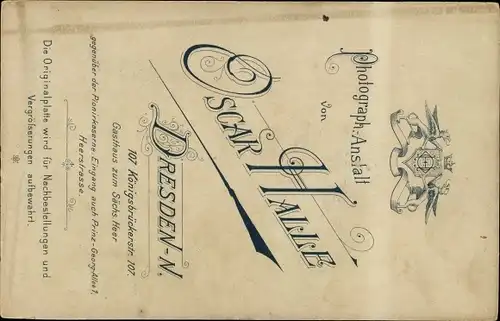 Photograph. Anstalt
von
OSCAR HALLE
DRESDEN-N.
107 Königsbrückerstr. 107.
Gasthaus zum Sächs. Heer
gegenüber der Pionirkaserne, Eingang auch Prinz-Georg-Allee 7,
Heerstrasse.
Die Originalplatte wird für Nachbestellungen und
Vergrösserungen aufbewahrt.